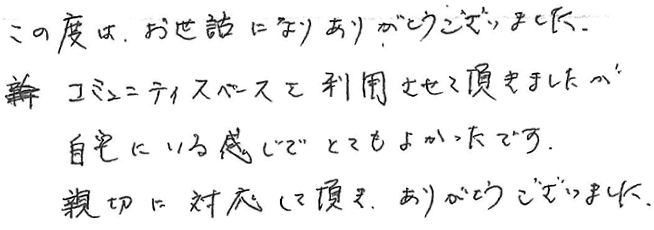 この度は、お世話になりありがとうございました。
コミュニティスペースを利用させて頂きましたが
自宅にいる感じでとてもよかったです。
親切に対応して頂き、ありがとうございました。